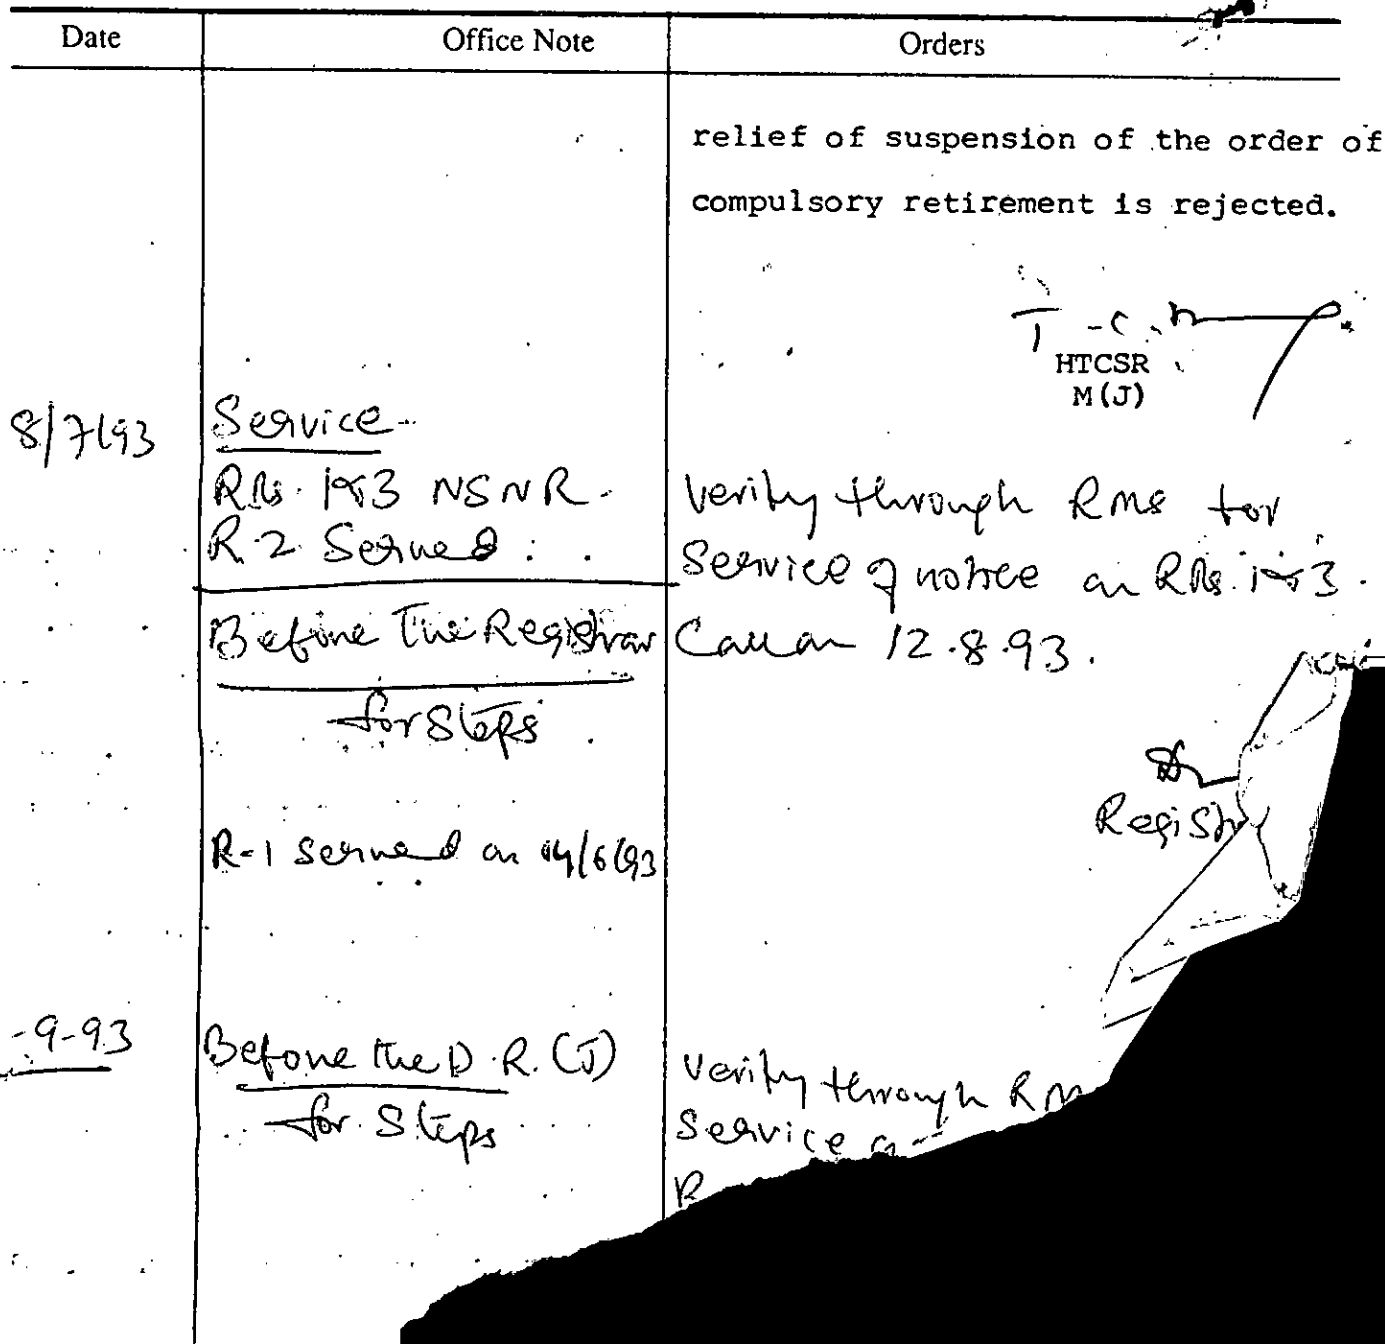 Date Office Note Orders
relief of suspension of the order of
compulsory retirement is rejected.
HTCSR
M(J)
8/7/93 Service
RRs. 1&3 NSNR.
R.2 Served.
Verify through RMs for
Service of notice on RRs. 1&3.
Call on 12.8.93.
Before The Registrar
for Steps
Registr
R-1 served on /6/93
-9-93 Before the D.R.(J)
for Steps
Verify through RM
Service
R